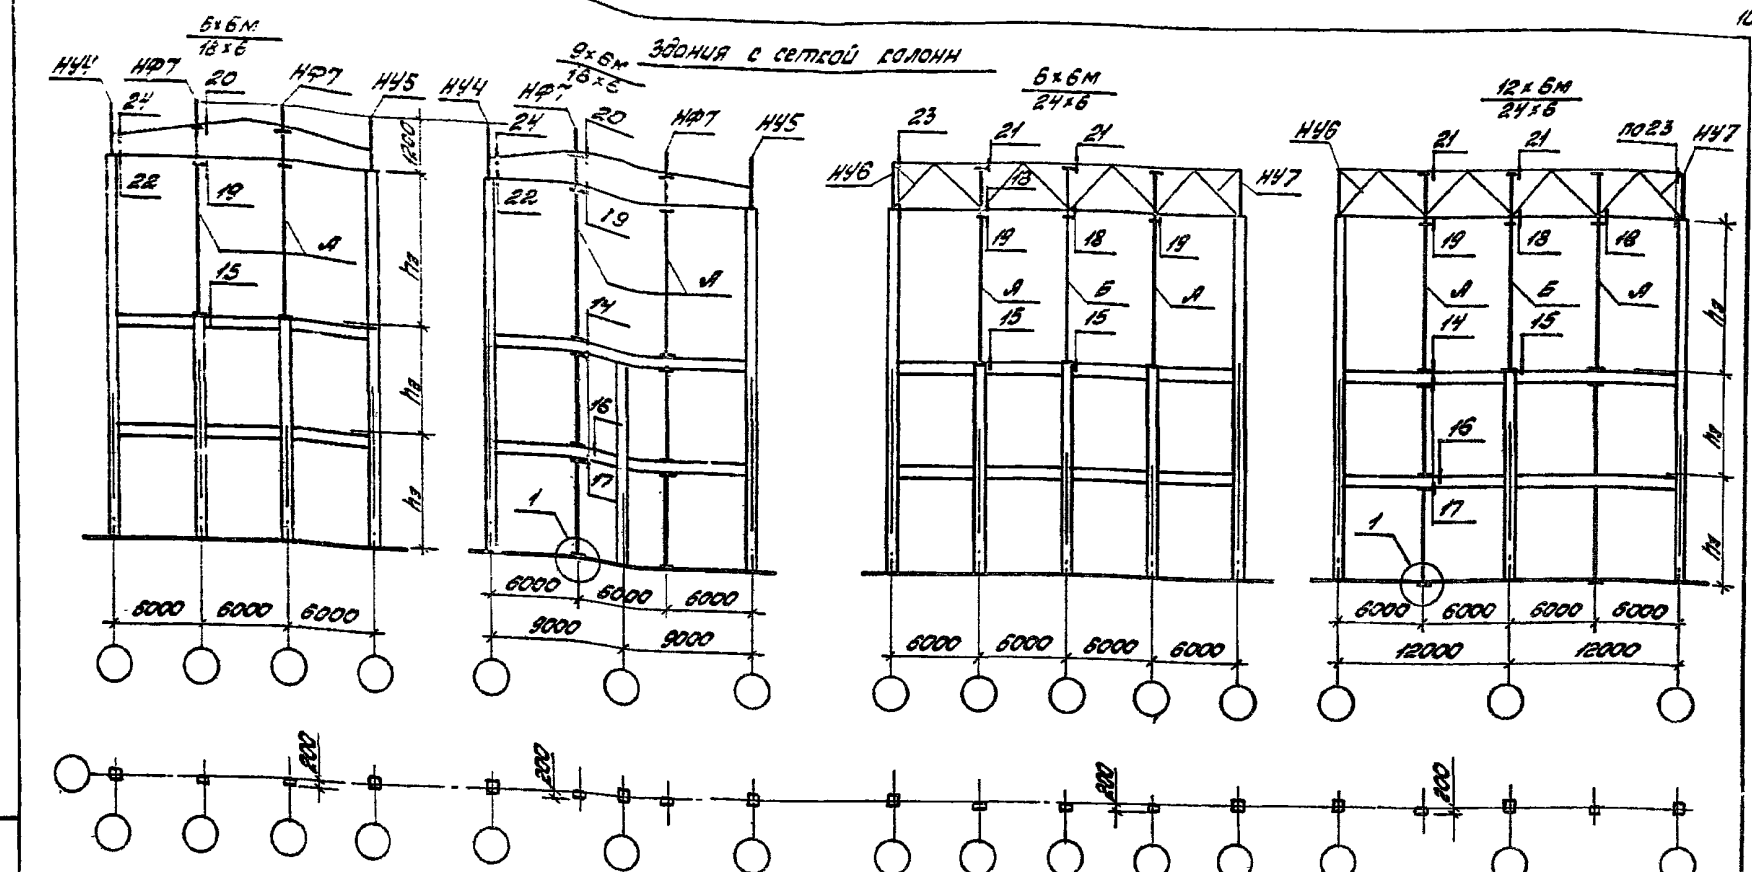 Здания с сеткой колонн
6×6м
18×6
9×6м
18×6
6×6м
24×6
12×6м
24×6
НУ4 НФ7 20 НФ7 НУ5
24
22 19
А
15
1200
hэ
hэ
hэ
6000 6000 6000
НУ4 НФ7 20 НФ7 НУ5
24
22 19
А
14
16
17
1
6000 6000 6000
9000 9000
НУ6 23 21 21 НУ7
18
19 18 19
А Б А
15 15
6000 6000 6000 6000
НУ6 21 21 по23 НУ7
19 18 18
А Б А
14 15
16
17
1
hэ
hэ
hэ
6000 6000 6000 6000
12000 12000
200 200 200 200